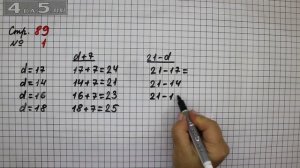 4 ALL 5
Стр. 89
№ 1
d+7 21-d
d=17 17+7=24 21-17=
d=14 14+7=21 21-14
d=16 16+7=23 21-1
d=18 18+7=25